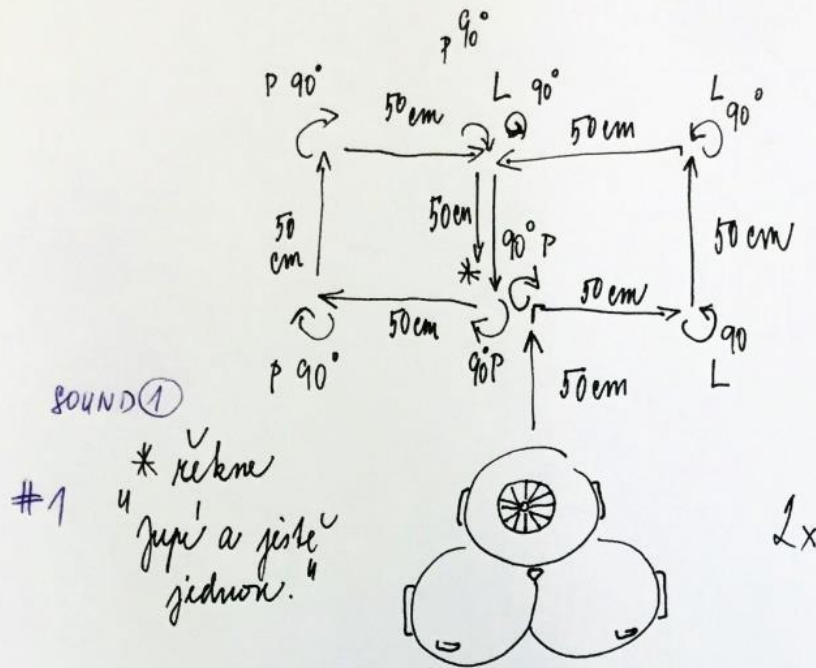 P 90°
P 90° 50 cm L 90° 50 cm L 90°
50 cm 50 cm 50 cm
* 90° P
50 cm 50 cm
P 90° 90° P 90 L
50 cm
SOUND 1
* řekne
#1 "Jupí a ještě
jednou."
2x